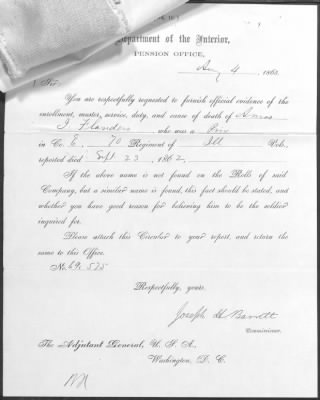 Department of the Interior,
PENSION OFFICE,
Aug 4, 1865.
Sir:
You are respectfully requested to furnish official evidence of the
enrollment, muster, service, duty, and cause of death of Amos
J Flanders who was a Priv
in Co. E, 70 Regiment of Ill Vols.
reported died Sept 23, 1862.
If the above name is not found on the Rolls of said
Company, but a similar name is found, this fact should be stated, and
whether you have good reason for believing him to be the soldier
inquired for.
Please attach this Circular to your report, and return the
same to this Office.
No. 69,575
Respectfully, yours,
Joseph H Barrett
Commissioner.
The Adjutant General, U. S. A.
Washington, D. C.